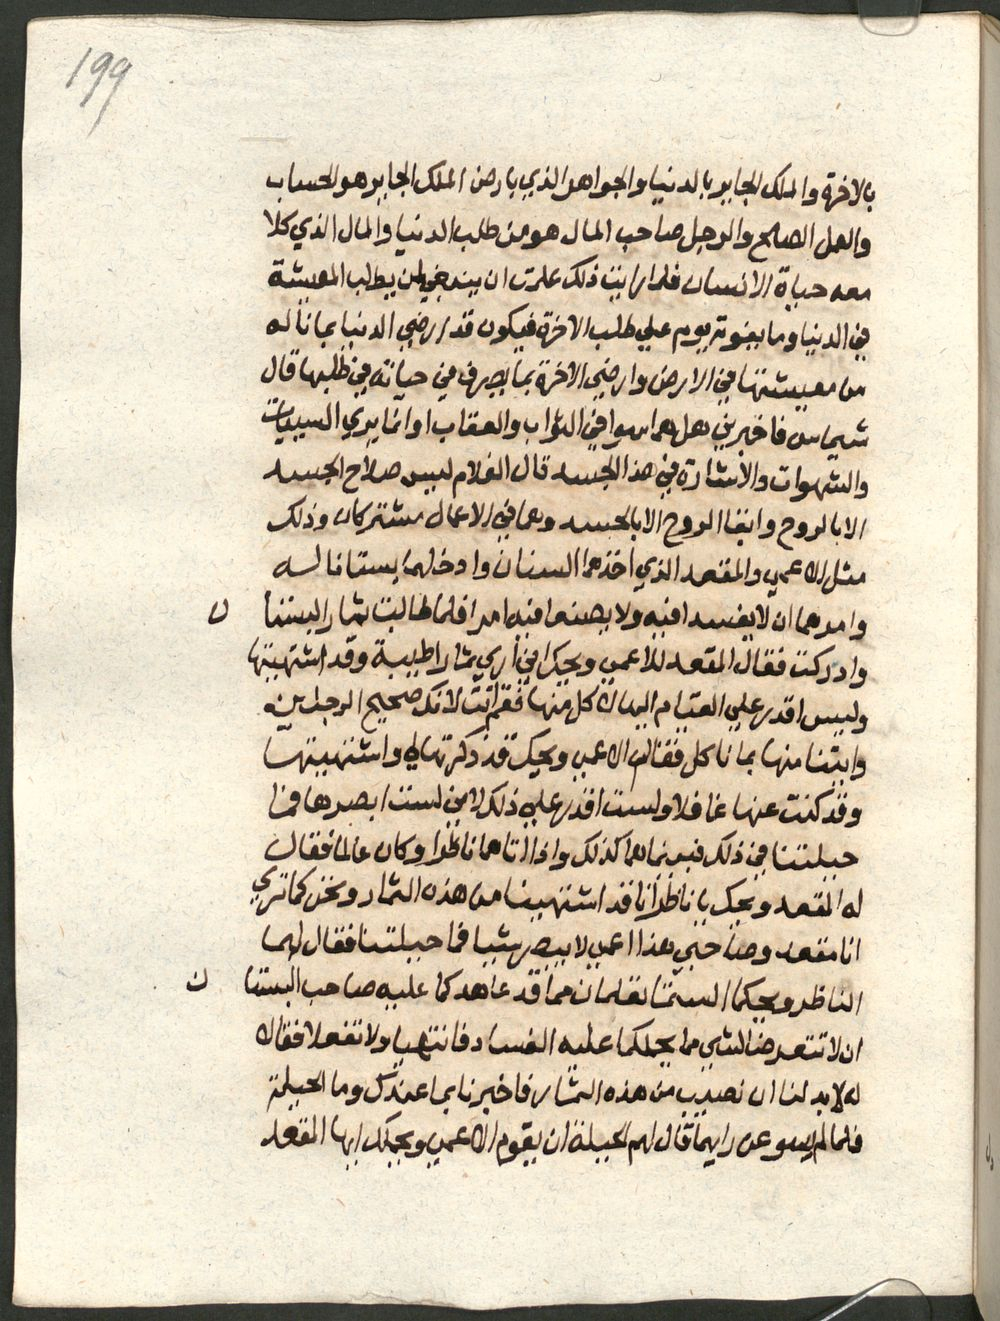 199
بالاخرة والملك الجاير بالدنيا والجواهر الذي بارض الملك الجاير هو الحساب
والعمل الصالح والرجل صاحب المال هو من طلب الدنيا والمال الذي كلا
معه حياة الانسان فلما رايت ذلك علمت ان ينبغي لمن يطلب المعيشة
في الدنيا وما يفوته يوم علي طلب الاخرة فيكون قد ارضي الدنيا بما ناله
من معيشتها في الارض وارضي الاخرة بما يصرف من حياته في طلبها قال
شيماس فاخبرني هل هما سوا في الثواب والعقاب او انما يري السييات
والشهوات والاشارة في هذا الجسد قال الغلام ليس صلاح الجسد
الا بالروح وانقا الروح الا بالجسد وهما في الاعمال مشتركان وذلك
مثل الاعمي والمقعد الذي اخذهما البستان وادخلهما بستانا له
وامرهما ان لا يفسدا فيه ولا يصنعا فيه امرا فلما طابت ثمار البستا
ن
وادركت فقال المقعد للاعمي ويحك اني اري ثمارا طيبة وقد اشتهيتها
وليس اقدر علي القيام اليها لاكل منها فقم انت لانك صحيح الرجلين
وايتنا منها بما ناكل فقال الاعمي ويحك قد ذكرتها لي واشتهيتها
وقد كنت عنها غافلا ولست اقدر علي ذلك لاني لست ابصرها فما
حيلتنا في ذلك فبينما هما كذلك واذا اتاهما ناظرا وكان عالما فقال
له المقعد ويحك يا ناظر انا قد اشتهينا من هذه الثمار ونحن كما تري
انا مقعد وصاحبي هذا اعمي لا يبصر شيا فما حيلتنا فقال لهما
الناظر ويحكما الستما تعلمان مما قد عاهدكما عليه صاحب البستا
ن
ان لا تتعرضا لشي مما يحملكما عليه الفساد فانتهيا ولا تفعلا فقال
له لا بد لنا ان نصيب من هذه الثمار فاخبرنا بما عندك وما الحيلة
فلما لم يسو عن رايهما قال لهم الحيلة ان يقوم الاعمي ويحملك ايها المقعد